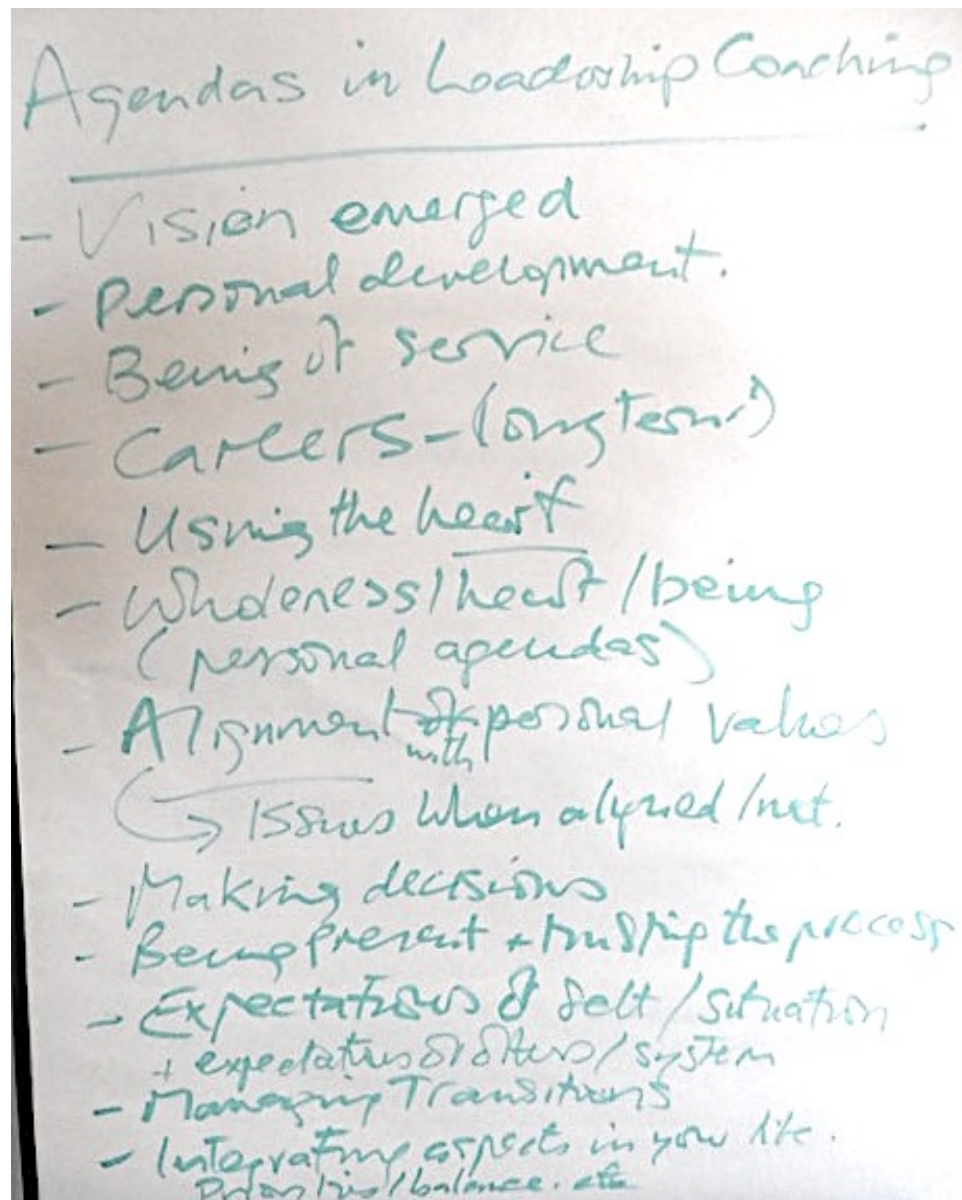 Agendas in Leadership Coaching
- Vision emerged
- Personal development.
- Being of service
- Careers - (long term)
- Using the heart
- Wholeness / heart / being
(personal agendas)
- Alignment with personal values
↳ Issues when aligned / not.
- Making decisions
- Being Present + trusting the process
- Expectations of Self / Situation
+ expectations of others / system
- Managing Transitions
- Integrating aspects in your life.
Priorities / balance. etc